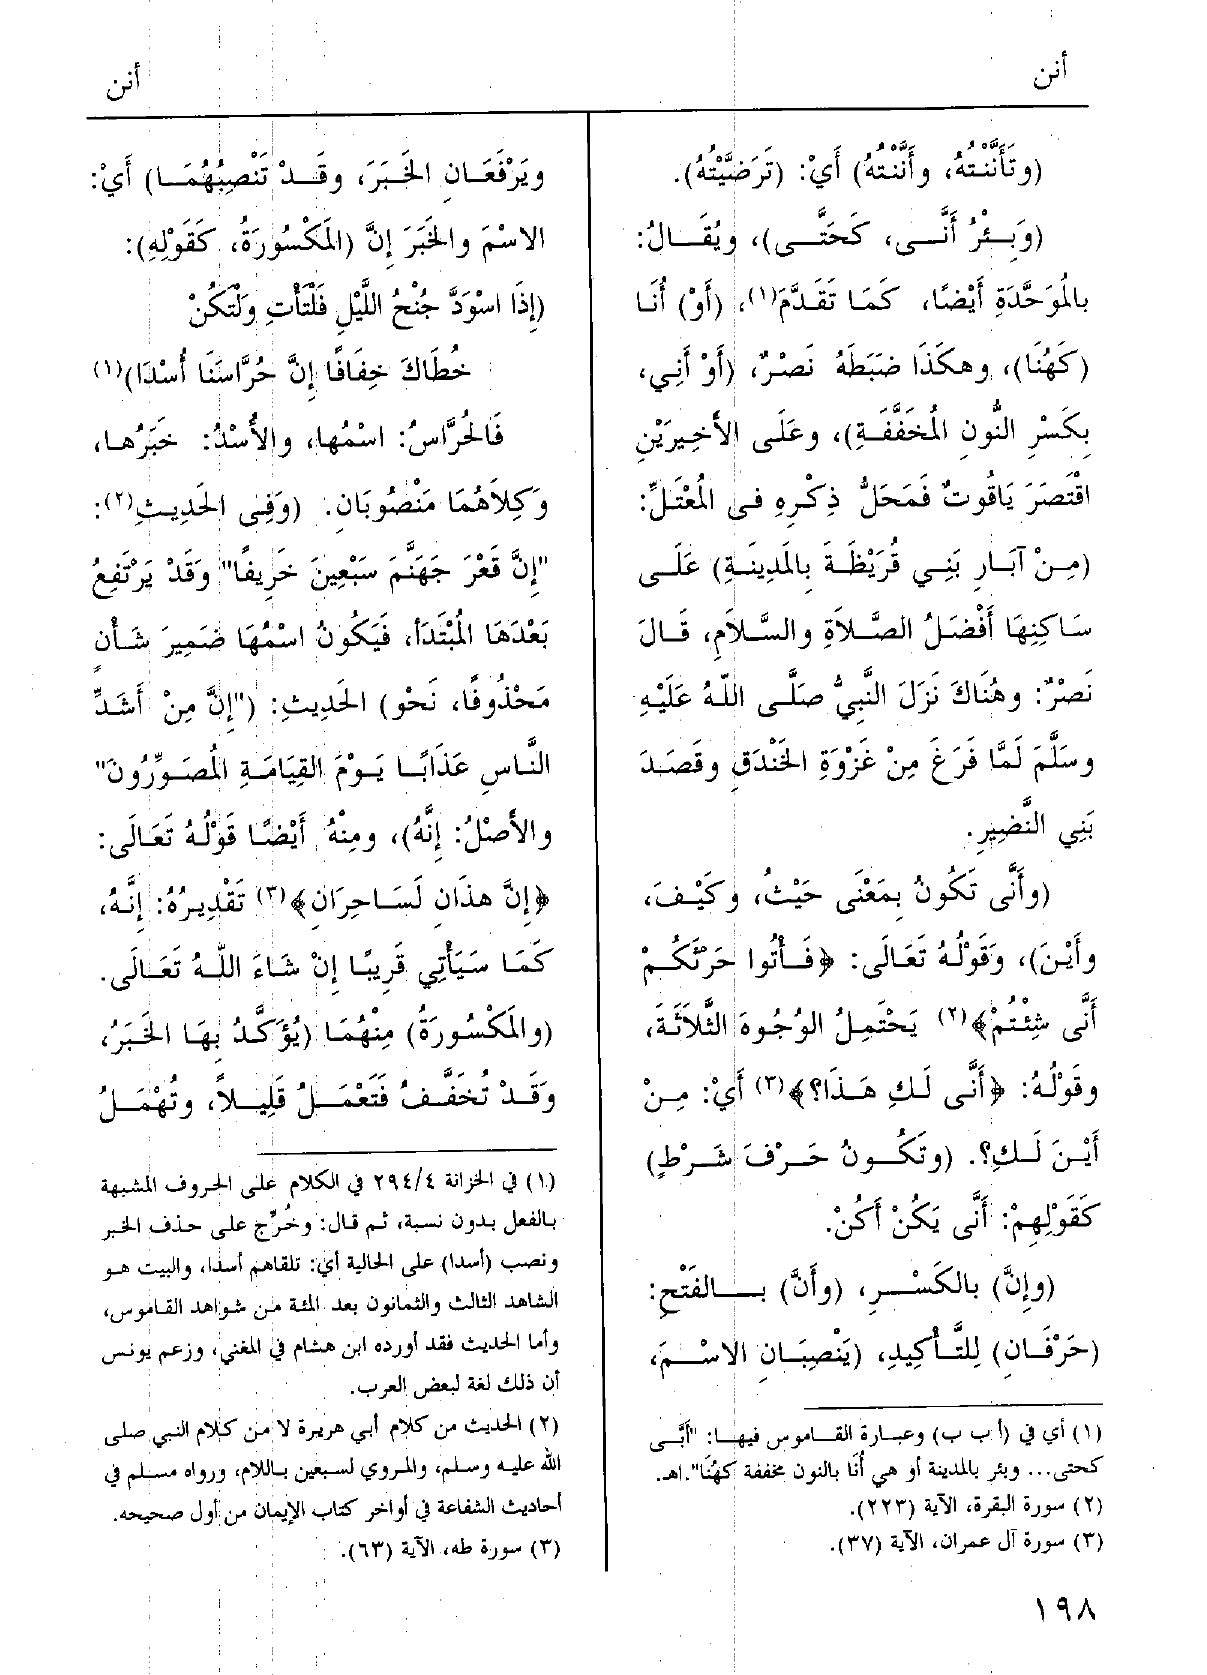 أنن
أنن
(وتَأَنَّنْتُهُ، وأَنَّنْتُهُ) أَيْ: (تَرَضَّيْتُهُ).
(وَبِئْرُ أَنَّى، كَحَتَّى)، ويُقَالُ:
بالمُوَحَّدَةِ أَيْضًا، كَمَا تَقَدَّمَ(١)، (أَوْ) أُنَا
(كَهُنَا)، وهكَذَا ضَبَطَهُ نَصْرٌ، (أَوْ أَنِي،
بِكَسْرِ النُّونِ المُخَفَّفَةِ)، وعَلَى الأَخِيرَيْنِ
اقْتَصَرَ يَاقُوتٌ فَمَحَلُّ ذِكْرِهِ فى المُعْتَلِّ:
(مِنْ آبَارِ بَنِي قُرَيْظَةَ بِالمَدِينَةِ) عَلَى
سَاكِنِهَا أَفْضَلُ الصَّلاَةِ والسَّلاَمِ، قَالَ
نَصْرٌ: وهُنَاكَ نَزَلَ النَّبِيُّ صَلَّى اللهُ عَلَيْهِ
وسَلَّمَ لَمَّا فَرَغَ مِنْ غَزْوَةِ الخَنْدَقِ وقَصَدَ
بَنِي النَّضِيرِ.
(وأَنَّى تَكُونُ بِمَعْنَى حَيْثُ، وكَيْفَ،
وأَيْنَ)، وَقَوْلُهُ تَعَالَى: ﴿فَأْتُوا حَرْثَكُمْ
أَنَّى شِئْتُمْ﴾(٢) يَحْتَمِلُ الوُجُوهَ الثَّلاَثَةَ،
وقَوْلُهُ: ﴿أَنَّى لَكِ هَذَا؟﴾(٣) أَيْ: مِنْ
أَيْنَ لَكِ؟. (وتَكُونُ حَرْفَ شَرْطٍ)
كَقَوْلِهِمْ: أَنَّى يَكُنْ أَكُنْ.
(وإِنَّ) بالكَسْرِ، (وأَنَّ) بِالفَتْحِ:
(حَرْفَانِ) لِلتَّأْكِيدِ، (يَنْصِبَانِ الاسْمَ،
(١) أي في (أ ب ب) وعبارة القاموس فيها: "أَبَّى
كحتى... وبئر بالمدينة أو هي أُنَا بالنون مخففة كهُنَا".اهـ.
(٢) سورة البقرة، الآية (٢٢٣).
(٣) سورة آل عمران، الآية (٣٧).
ويَرْفَعَانِ الخَبَرَ، وقَدْ تَنْصِبُهُمَا) أَيْ:
الاسْمَ والخَبَرَ إنَّ (المَكْسُورَةُ، كَقَوْلِهِ):
(إِذَا اسْوَدَّ جُنْحُ اللَّيْلِ فَلْتَأْتِ وَلْتَكُنْ
خُطَاكَ خِفَافًا إِنَّ حُرَّاسَنَا أُسْدَا)(١)
فَالحُرَّاسُ: اسْمُها، والأُسْدُ: خَبَرُها،
وَكِلاَهُمَا مَنْصُوبَانِ. (وَفِى الحَدِيثِ(٢):
"إِنَّ قَعْرَ جَهَنَّمَ سَبْعِينَ خَرِيفًا" وَقَدْ يَرْتَفِعُ
بَعْدَهَا المُبْتَدَأ، فَيَكُونُ اسْمُهَا ضَمِيرَ شَأْنٍ
مَحْذُوفًا، نَحْو) الحَدِيثِ: ("إِنَّ مِنْ أَشَدِّ
النَّاسِ عَذَابًا يَوْمَ القِيَامَةِ المُصَوِّرُونَ"
والأَصْلُ: إِنَّهُ)، ومِنْهُ أَيْضًا قَوْلُهُ تَعَالَى:
﴿إِنَّ هذَانِ لَسَاحِرَانِ﴾(٣) تَقْدِيرُهُ: إِنَّهُ،
كَمَا سَيَأْتِي قَرِيبًا إِنْ شَاءَ اللهُ تَعَالَى.
(والمَكْسُورَةُ) مِنْهُمَا (يُؤَكَّدُ بِهَا الخَبَرُ،
وَقَدْ تُخَفَّفُ فَتَعْمَلُ قَلِيلاً، وتُهْمَلُ
(١) في الخزانة ٢٩٤/٤ في الكلام على الحروف المشبهة
بالفعل بدون نسبة، ثم قال: وخُرِّج على حذف الخبر
ونصب (أسدا) على الحالية أي: تلقاهم أسدا، والبيت هو
الشاهد الثالث والثمانون بعد المئة من شواهد القاموس،
وأما الحديث فقد أورده ابن هشام في المغني، وزعم يونس
أن ذلك لغة لبعض العرب.
(٢) الحديث من كلام أبي هريرة لا من كلام النبي صلى
الله عليه وسلم، والمروي لسبعين باللام، ورواه مسلم في
أحاديث الشفاعة في أواخر كتاب الإيمان من أول صحيحه.
(٣) سورة طه، الآية (٦٣).
١٩٨